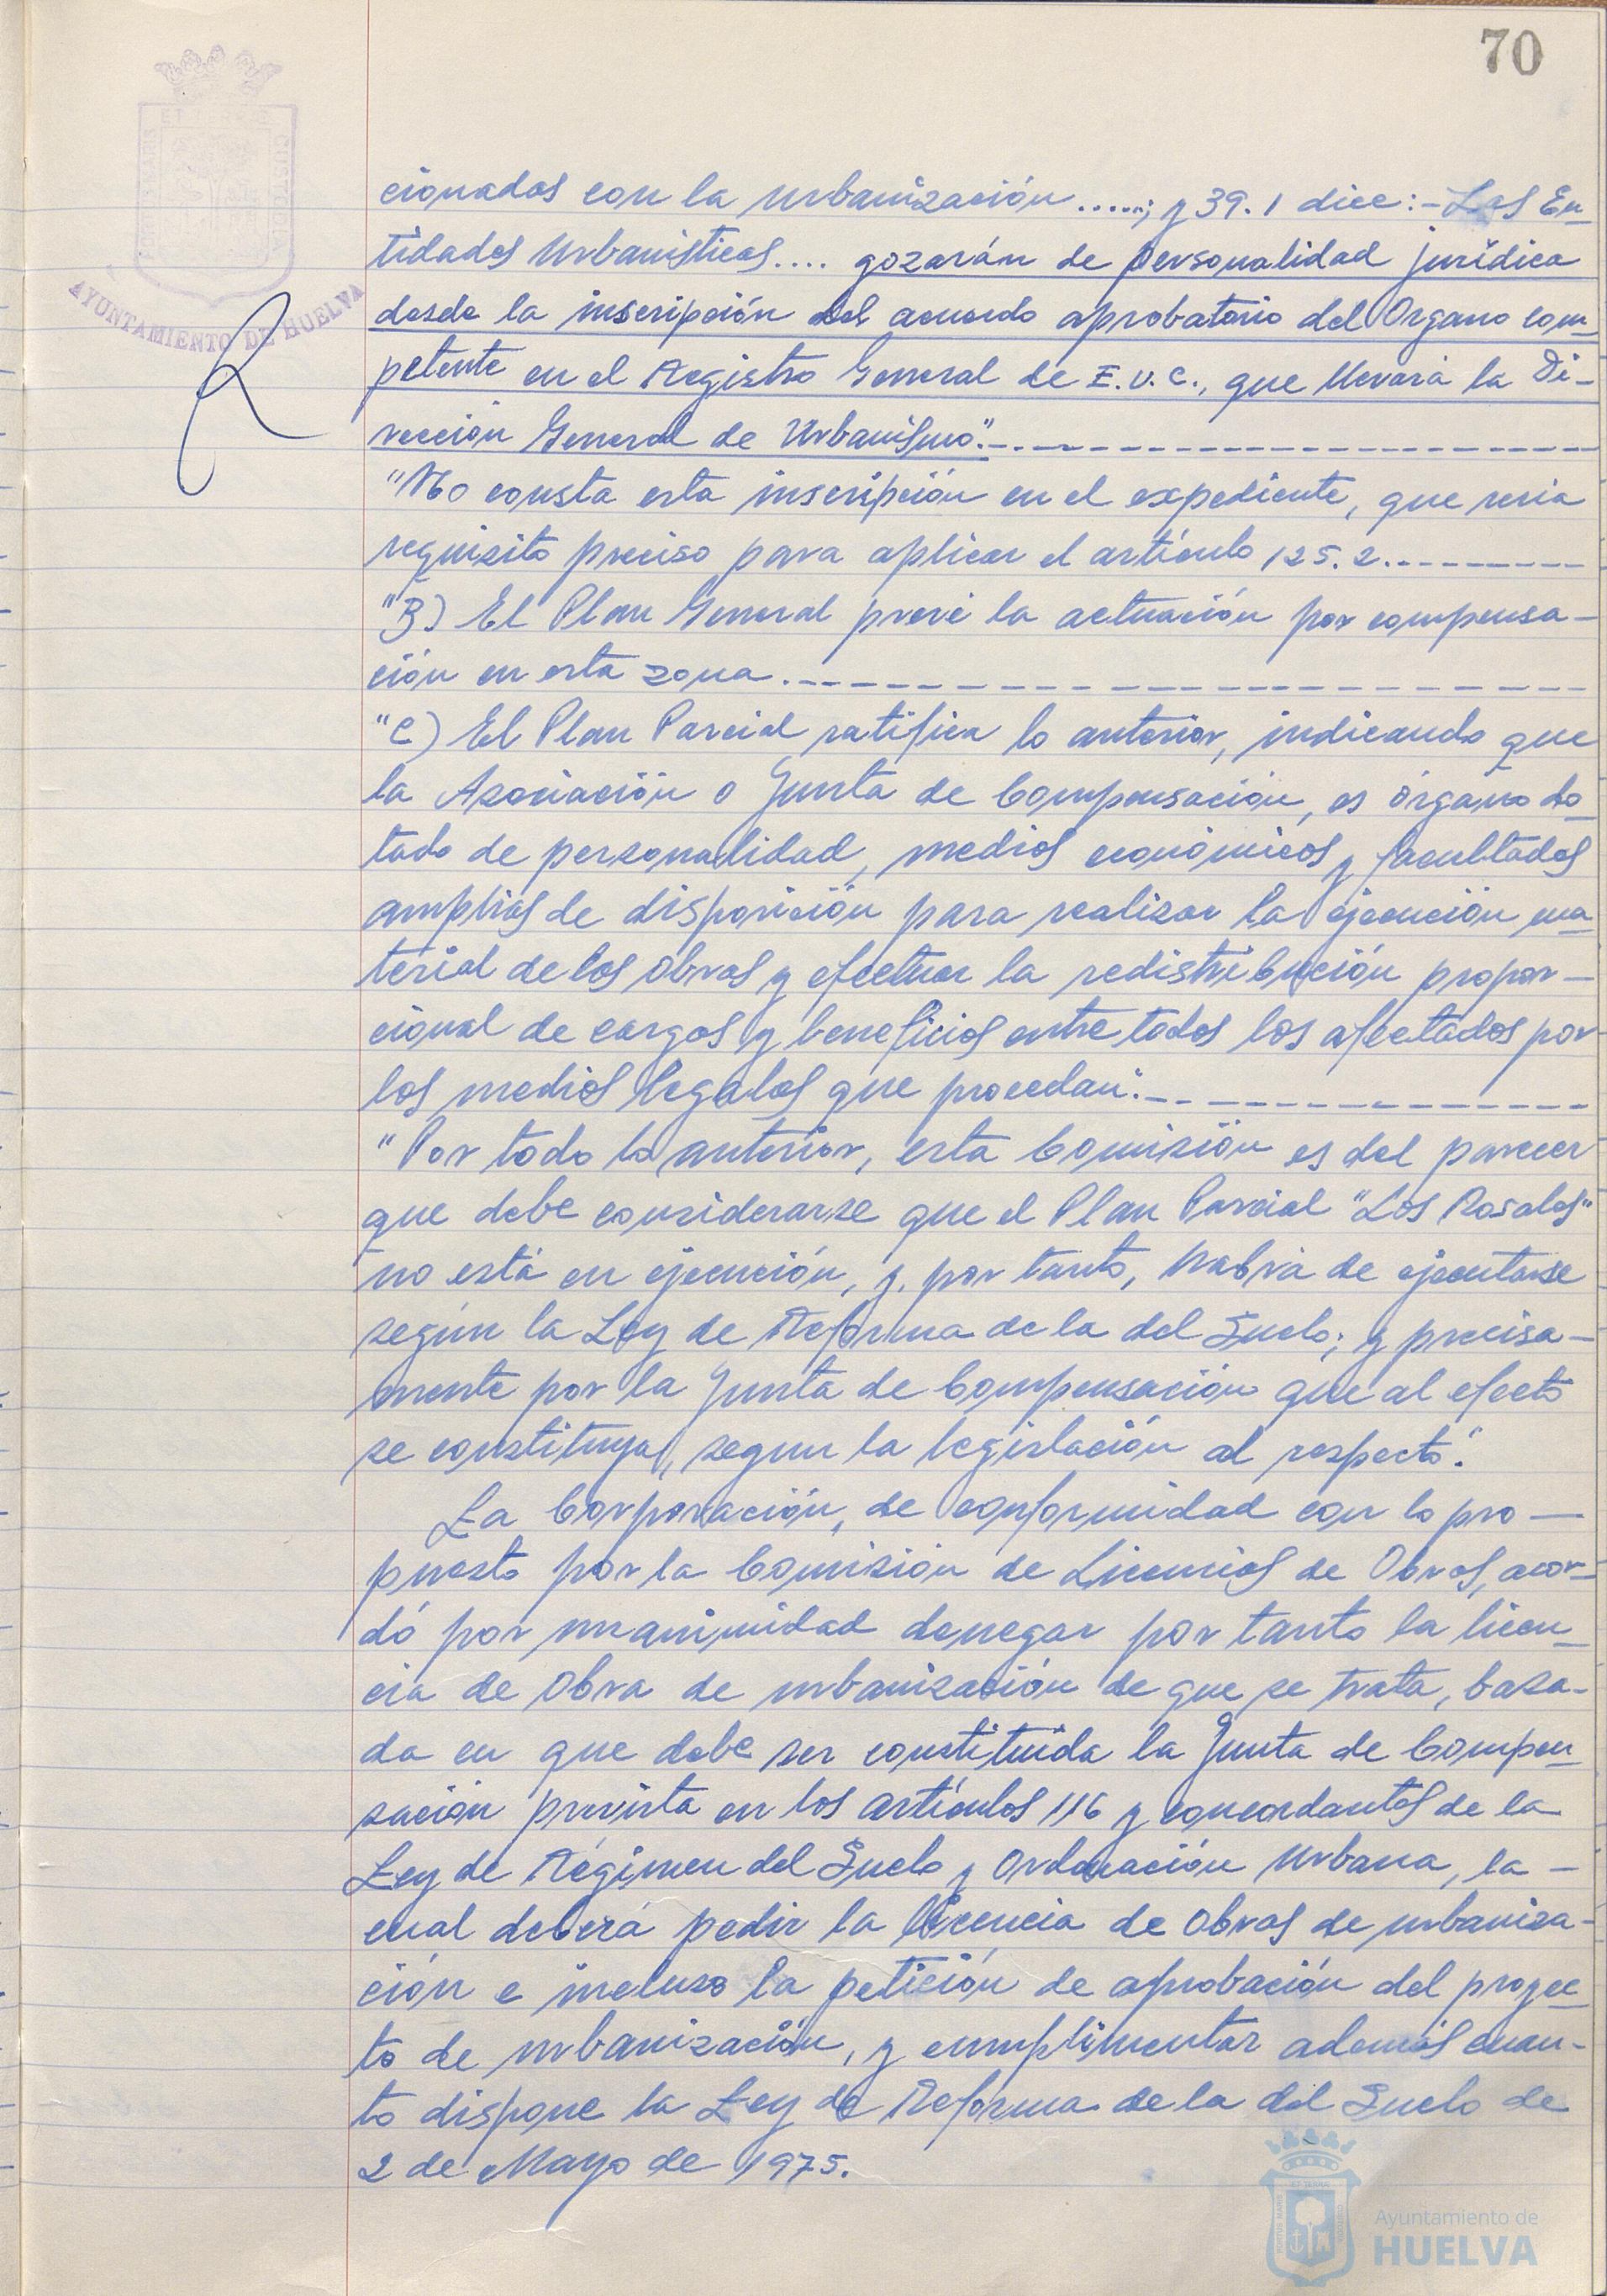 70
AYUNTAMIENTO DE HUELVA
cionados con la urbanización .....; y 39.1 dice:- Las En-
tidades Urbanísticas.... gozarán de personalidad jurídica
desde la inscripción del acuerdo aprobatorio del Organo com-
petente en el Registro General de E.U.C., que llevará la Di-
rección General de Urbanismo".
"No consta esta inscripción en el expediente, que seria
requisito preciso para aplicar el artículo 125.2.
"B) El Plan General prevé la actuación por compensa-
ción en esta zona.
"C) El Plan Parcial ratifica lo anterior, indicando que
la Asociación o Junta de Compensación, es órgano do-
tado de personalidad, medios económicos y facultades
amplias de disposición para realizar la ejecución ma-
terial de las obras y efectuar la redistribución propor-
cional de cargas y beneficios entre todos los afectados por
los medios legales que procedan".
"Por todo lo anterior, esta Comisión es del parecer
que debe considerarse que el Plan Parcial "Los Rosales"
no está en ejecución, y, por tanto, habrá de ejecutarse
según la Ley de Reforma de la del Suelo; y precisa-
mente por la Junta de Compensación que al efecto
se constituya, segun la legislación al respecto".
La Corporación, de conformidad con lo pro-
puesto por la Comisión de Licencias de Obras, acor-
dó por unanimidad denegar por tanto la licen-
cia de obra de urbanización de que se trata, basa-
da en que debe ser constituida la Junta de Compen-
sación prevista en los artículos 116 y concordantes de la
Ley de Régimen del Suelo y Ordenación Urbana, la-
cual deberá pedir la licencia de obras de urbaniza-
ción e incluso la petición de aprobación del proyec-
to de urbanización, y cumplimentar además cuan-
to dispone la Ley de Reforma de la del Suelo de
2 de Mayo de 1975.
Ayuntamiento de
HUELVA